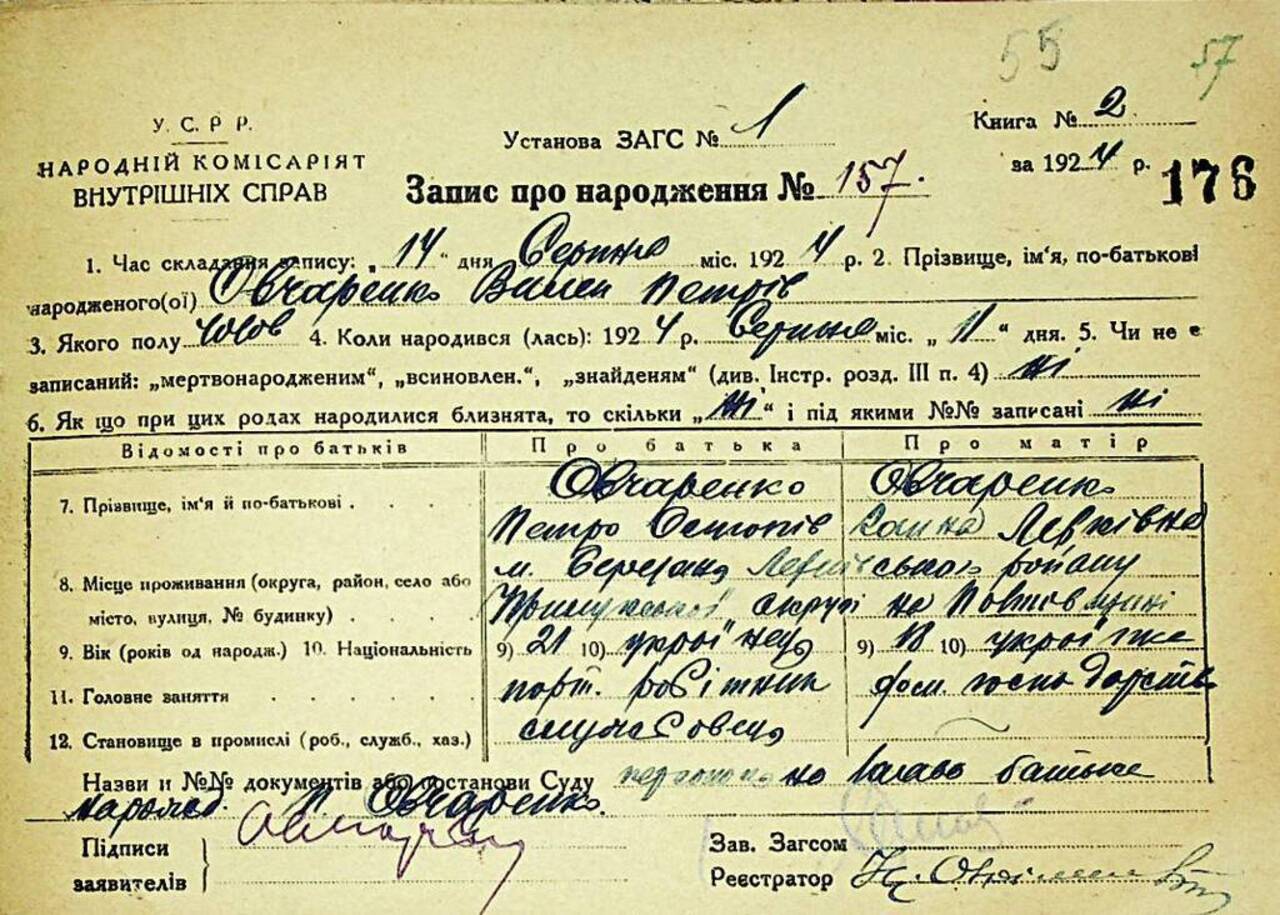 55 57
У. С. Р Р.
НАРОДНІЙ КОМІСАРІЯТ
ВНУТРІШНІХ СПРАВ
Установа ЗАГС № 1
Книга № 2
за 1924 р.
176
Запис про народження № 157.
1. Час складання запису: „14“ дня Серпня міс. 1924 р. 2. Прізвище, ім'я, по-батькові
народженого(ої) Овчаренко Вилен Петрів
3. Якого полу чолов 4. Коли народився (лась): 1924 р. Серпня міс. „11“ дня. 5. Чи не є
записаний: „мертвонародженим“, „всиновлен.“, „знайденям“ (див. Інстр. розд. III п. 4) ні
6. Як що при цих родах народилися близнята, то скільки „ні“ і під якими №№ записані ні
Відомості про батьків Про батька Про матір
7. Прізвище, ім'я й по-батькові Овчаренко Овчаренко
Петро Левківна
8. Місце проживання (округа, район, село або м. Березань району
місто, вулиця, № будинку) округі на
9. Вік (років од народж.) 10. Національність 9) 21 10) українець 9) 18 10)
11. Головне заняття парт. робітник дом. господарств
12. Становище в промислі (роб., служб., хаз.)
Назви и №№ документів або постанови Суду на батька
П. Овчаренко.
Підписи
заявителів
Зав. Загсом
Реєстратор